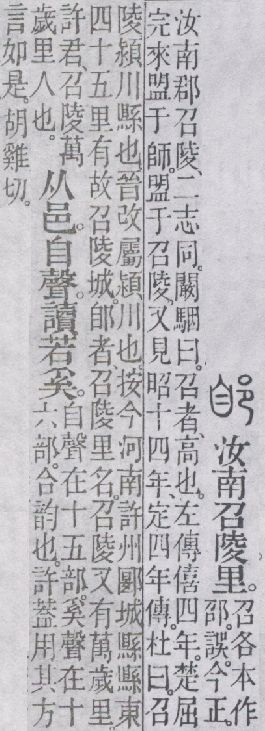 郋 汝南召陵里。召各本作
邵。誤。今正。
汝南郡召陵、二志同。闞駰曰。召者、高也。左傳僖四年。楚屈
完來盟于師。盟于召陵。又見昭十四年、定四年傳。杜曰。召
陵潁川縣也。晉改屬潁川也。按今河南許州郾城縣縣東
四十五里有故召陵城。郋者、召陵里名。召陵又有萬歲里。
許君、召陵萬
歲里人也。
从邑。自聲。讀若奚。自聲在十五部。奚聲在十
六部。合韵也。許葢用其方
言如是。胡雞切。